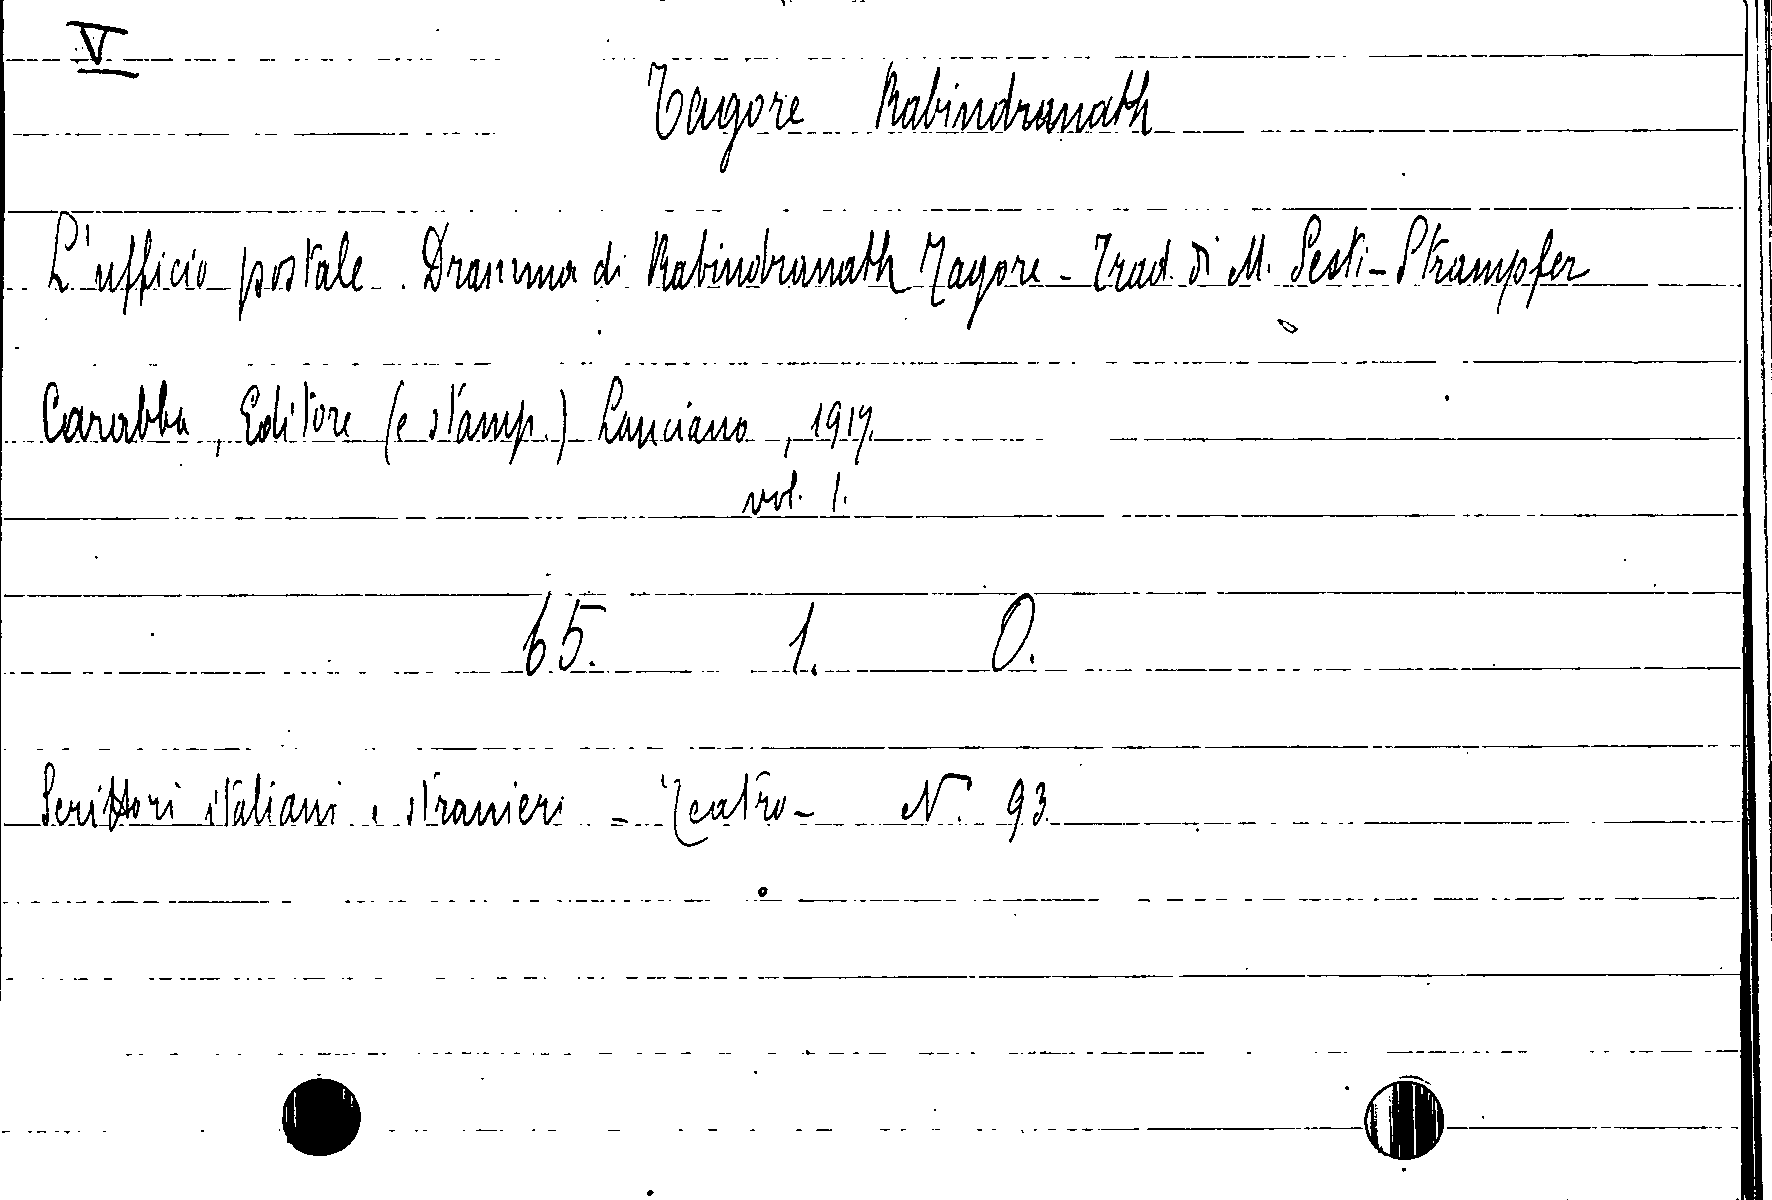 V
Tagore Rabindranath
L'ufficio postale. Dramma di Rabindranath Tagore - Trad. di M. Sesti-Strampfer
Carabba, Editore (e stamp.) Lanciano, 1917.
vol. 1.
65. 1. O.
Scrittori italiani e stranieri - Teatro - N. 93